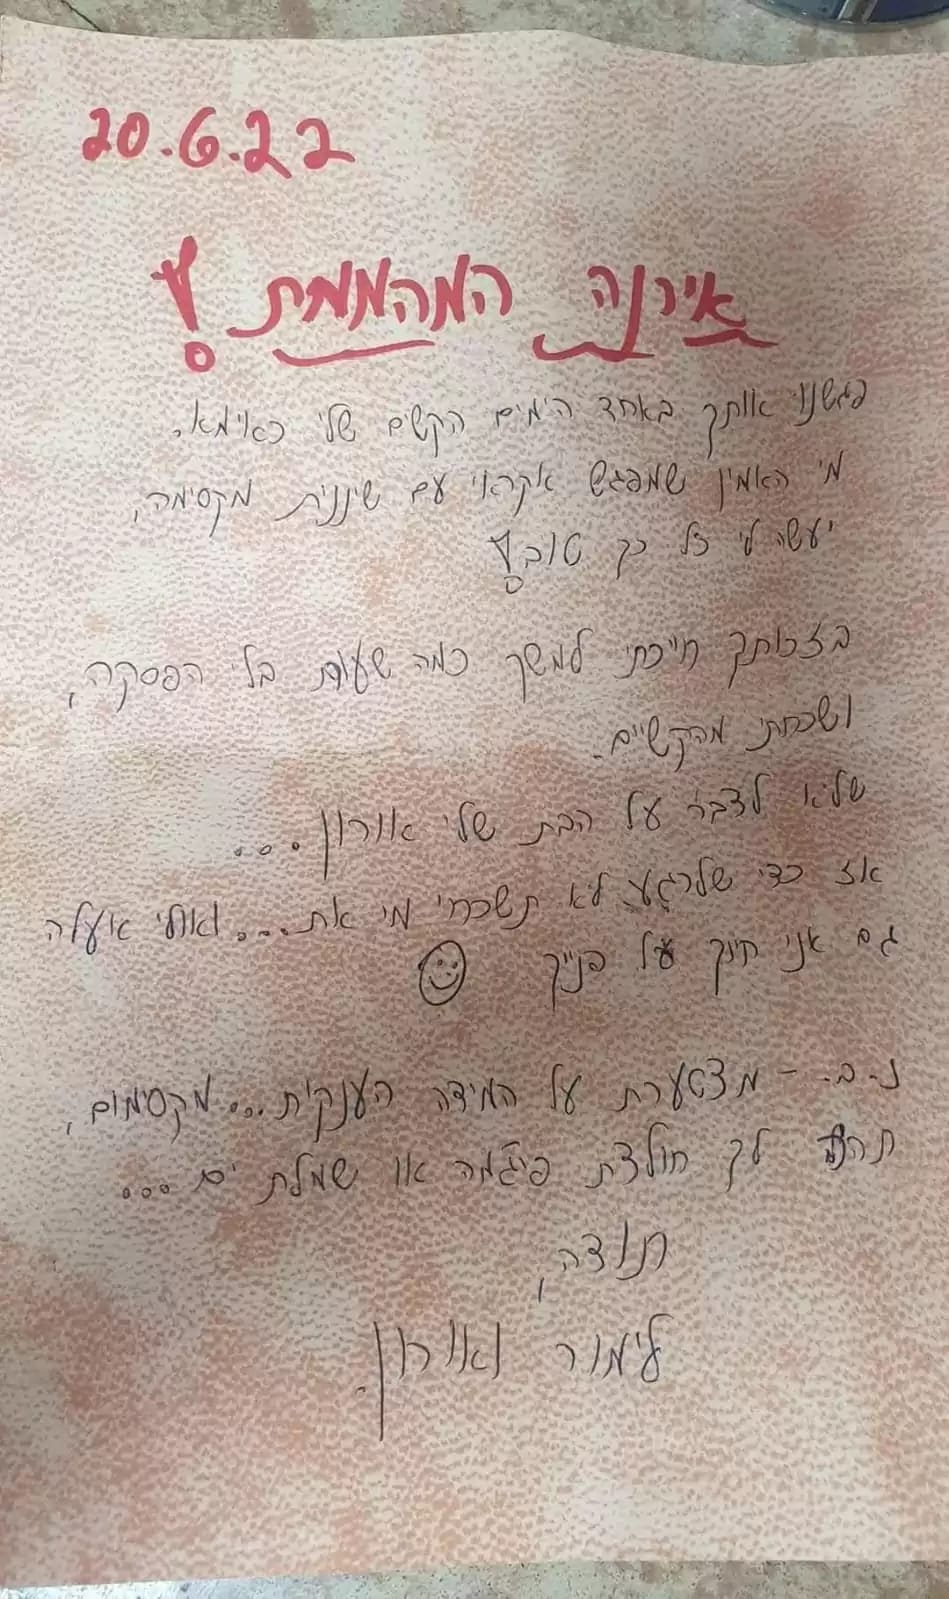 20.6.22
אירנה המהממת!
פגשנו אותך באחד הימים הקשים שלי כאימא.
מי האמין שמפגש אקראי עם שיננית מקסימה,
יעשה לי כל כך טוב!
בזכותך חייכתי למשך כמה שעות בלי הפסקה,
ושכחתי מהקשיים.
שלא לדבר על הבת שלי אורון...
אז כדי שלרגע לא תשכחי מי את... ואולי אעלה
גם אני חיוך על פנייך
נ.ב. - מצטערת על המידה הענקית... מקסימום,
לך חולצת פיג'מה או שמלת ים...
תודה,
לימור ואורון.